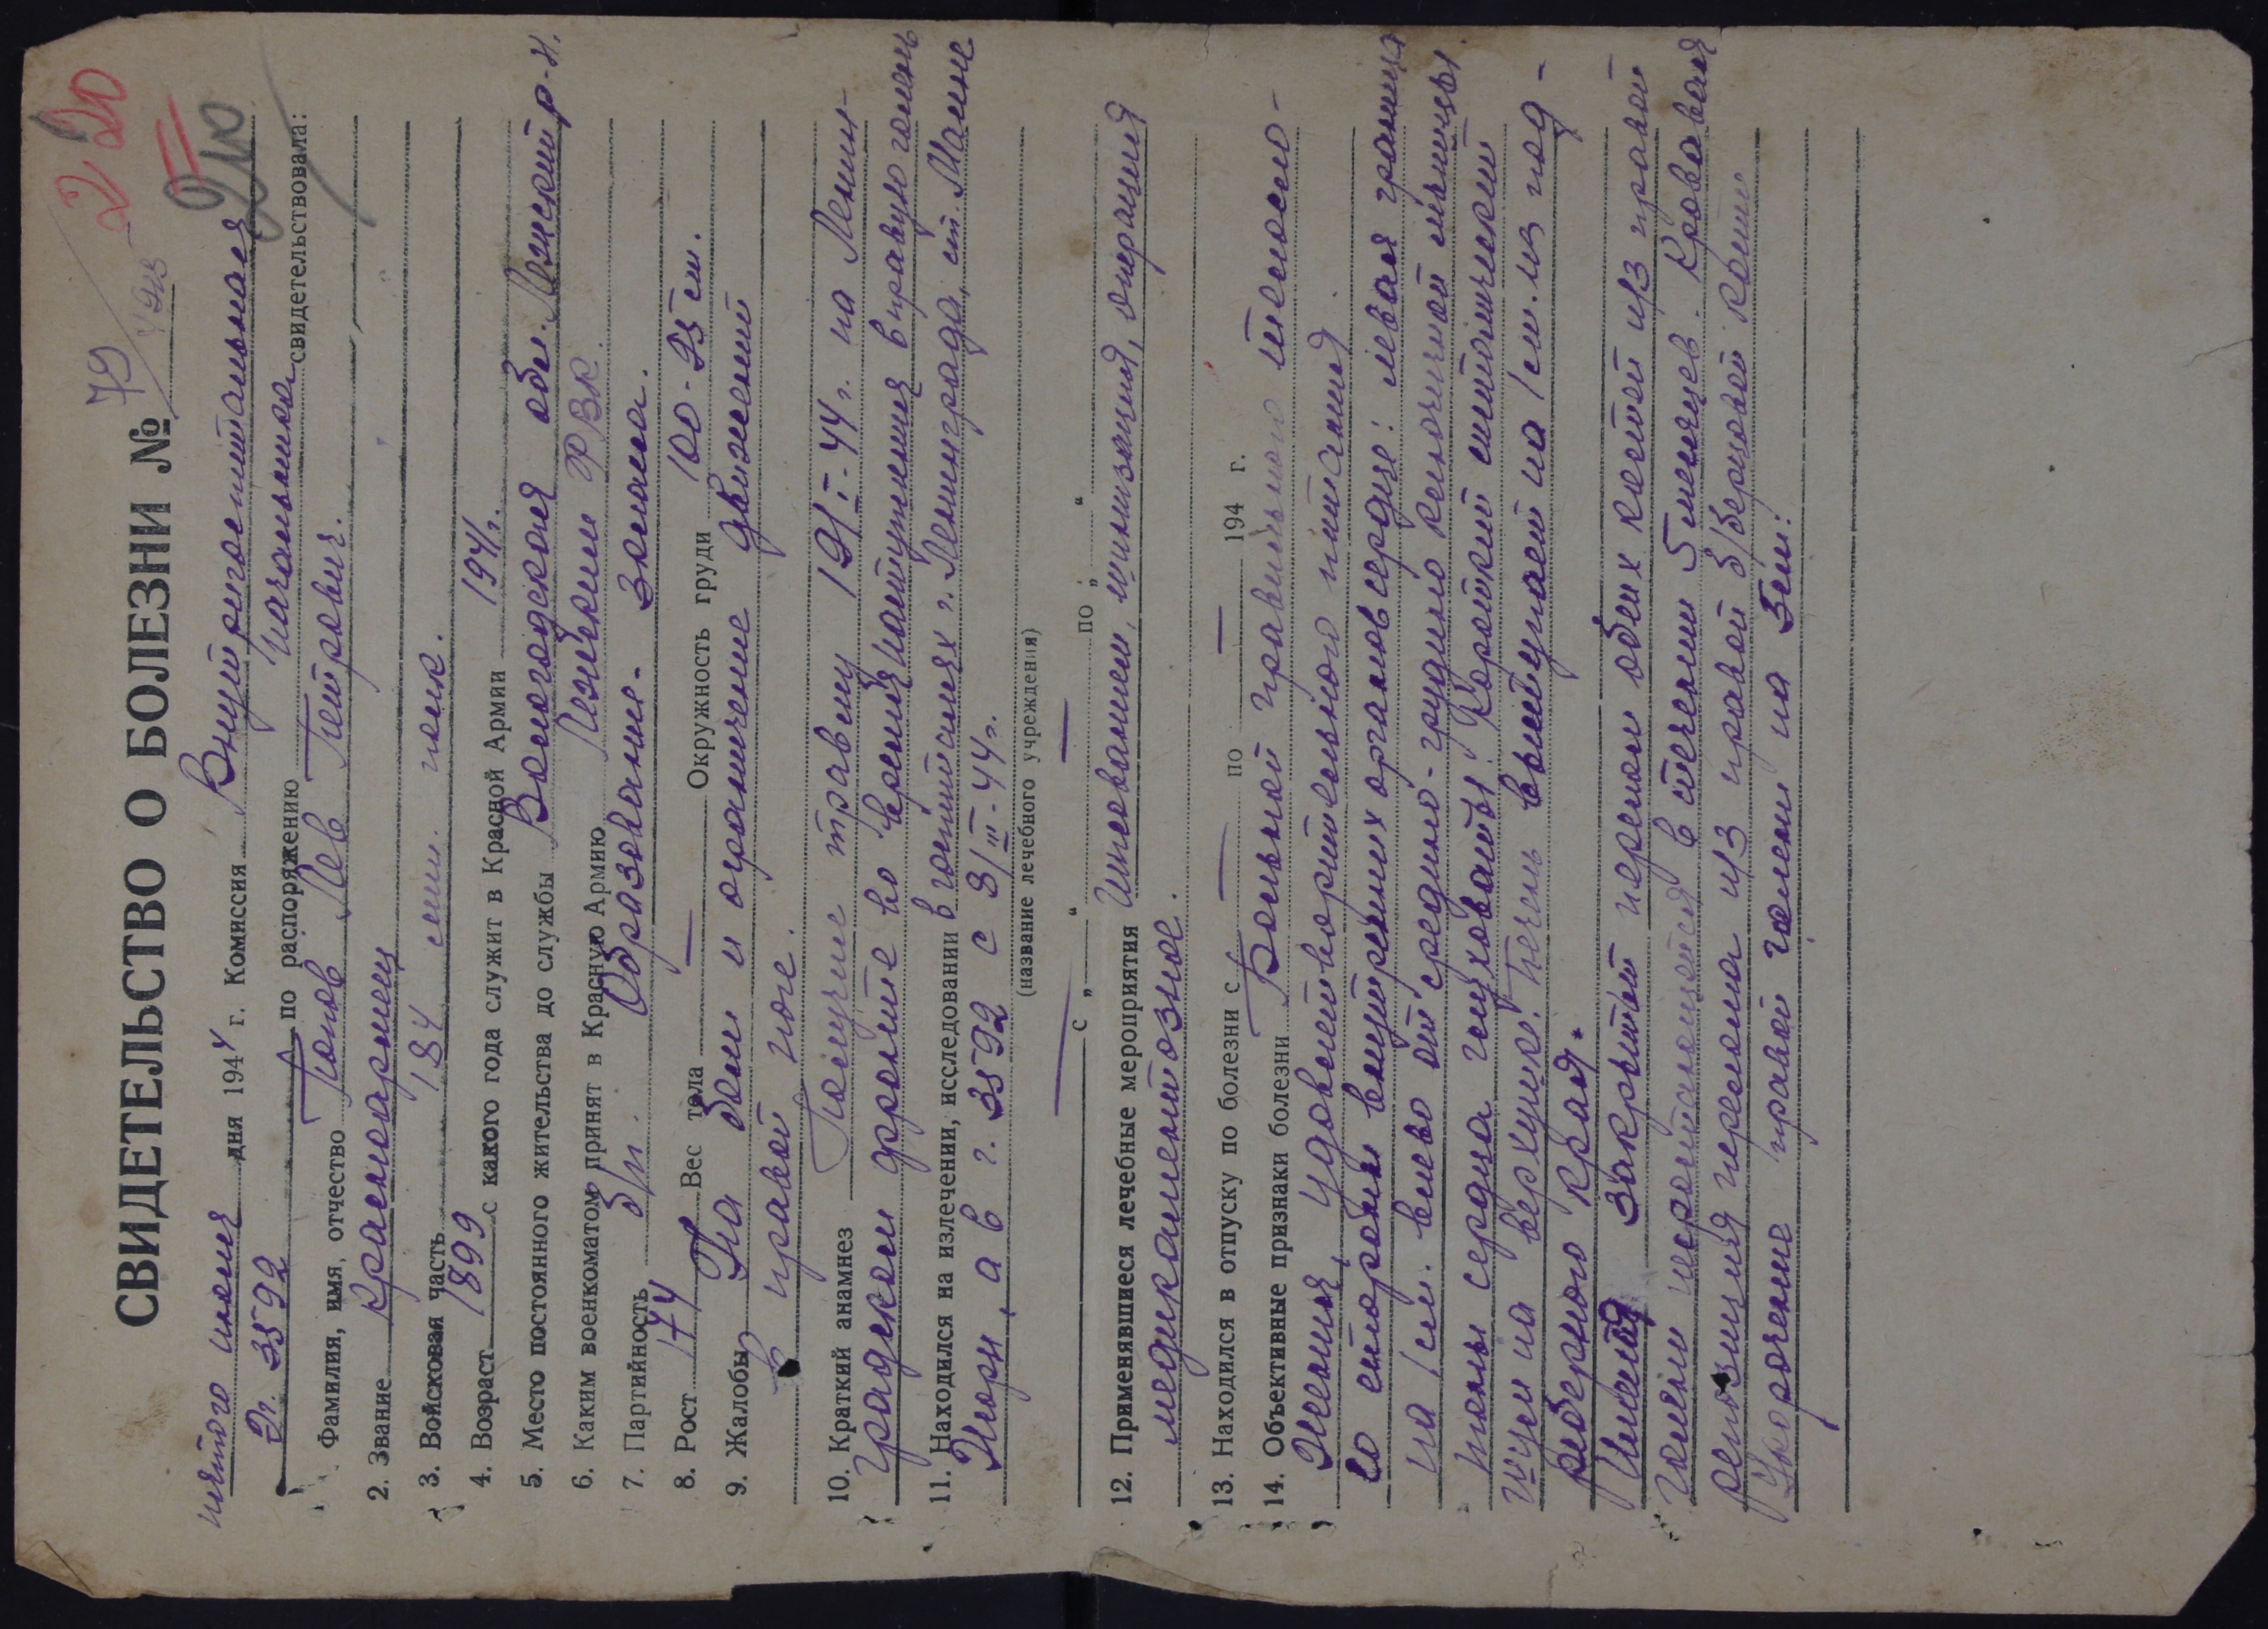 220
210
СВИДЕТЕЛЬСТВО О БОЛЕЗНИ № 79
пятого июня дня 1944 г. Комиссия Внутригоспитальная
Эг. 3592 по распоряжению начальника свидетельствовала:
Фамилия, имя, отчество Попов Лев Петрович.
2. Звание Красноармеец
3. Войсковая часть 184 полк.
4. Возраст 1899 с какого года служит в Красной Армии 1941г.
5. Место постоянного жительства до службы Вологодская обл. Лежский р-н.
6. Каким военкоматом принят в Красную Армию Лежским РВК.
7. Партийность б/п. Образование-
8. Рост 174 Вес тела — Окружность груди 100-95 см.
9. Жалобы На боли и ограничение движений
в правой ноге.
10. Краткий анамнез Получил травму 19/I-44г. на Ленин-
градском фронте во время наступления в правую голень
11. Находился на излечении, исследовании в госпиталях г. Ленинграда, ст. Манне
, а в г. 3592 с 8/III-44г.
(название лечебного учреждения)
с „ — “ — по „ “
12. Применявшиеся лечебные мероприятия Шинизация, операция
медикаментозное.
13. Находился в отпуску по болезни с — по — 194 г.
14. Объективные признаки болезни Больной правильного телосло-
жения, удовлетворительного питания.
Со стороны внутренних органов сердце: левая граница
на 1 см. влево от средино-грудино ключичной линии.
Тоны сердца глуховаты. Короткий систолический
шум на верхушке. Печень выступает на 1 см. из под-
реберного края.
Закрытый перелом обеих костей из правой
голени несростающийся в течении 5 месяцев. Кровавая
репозиция перелома из правой б/берцовой кости
Укорочение правой голени на 3см: